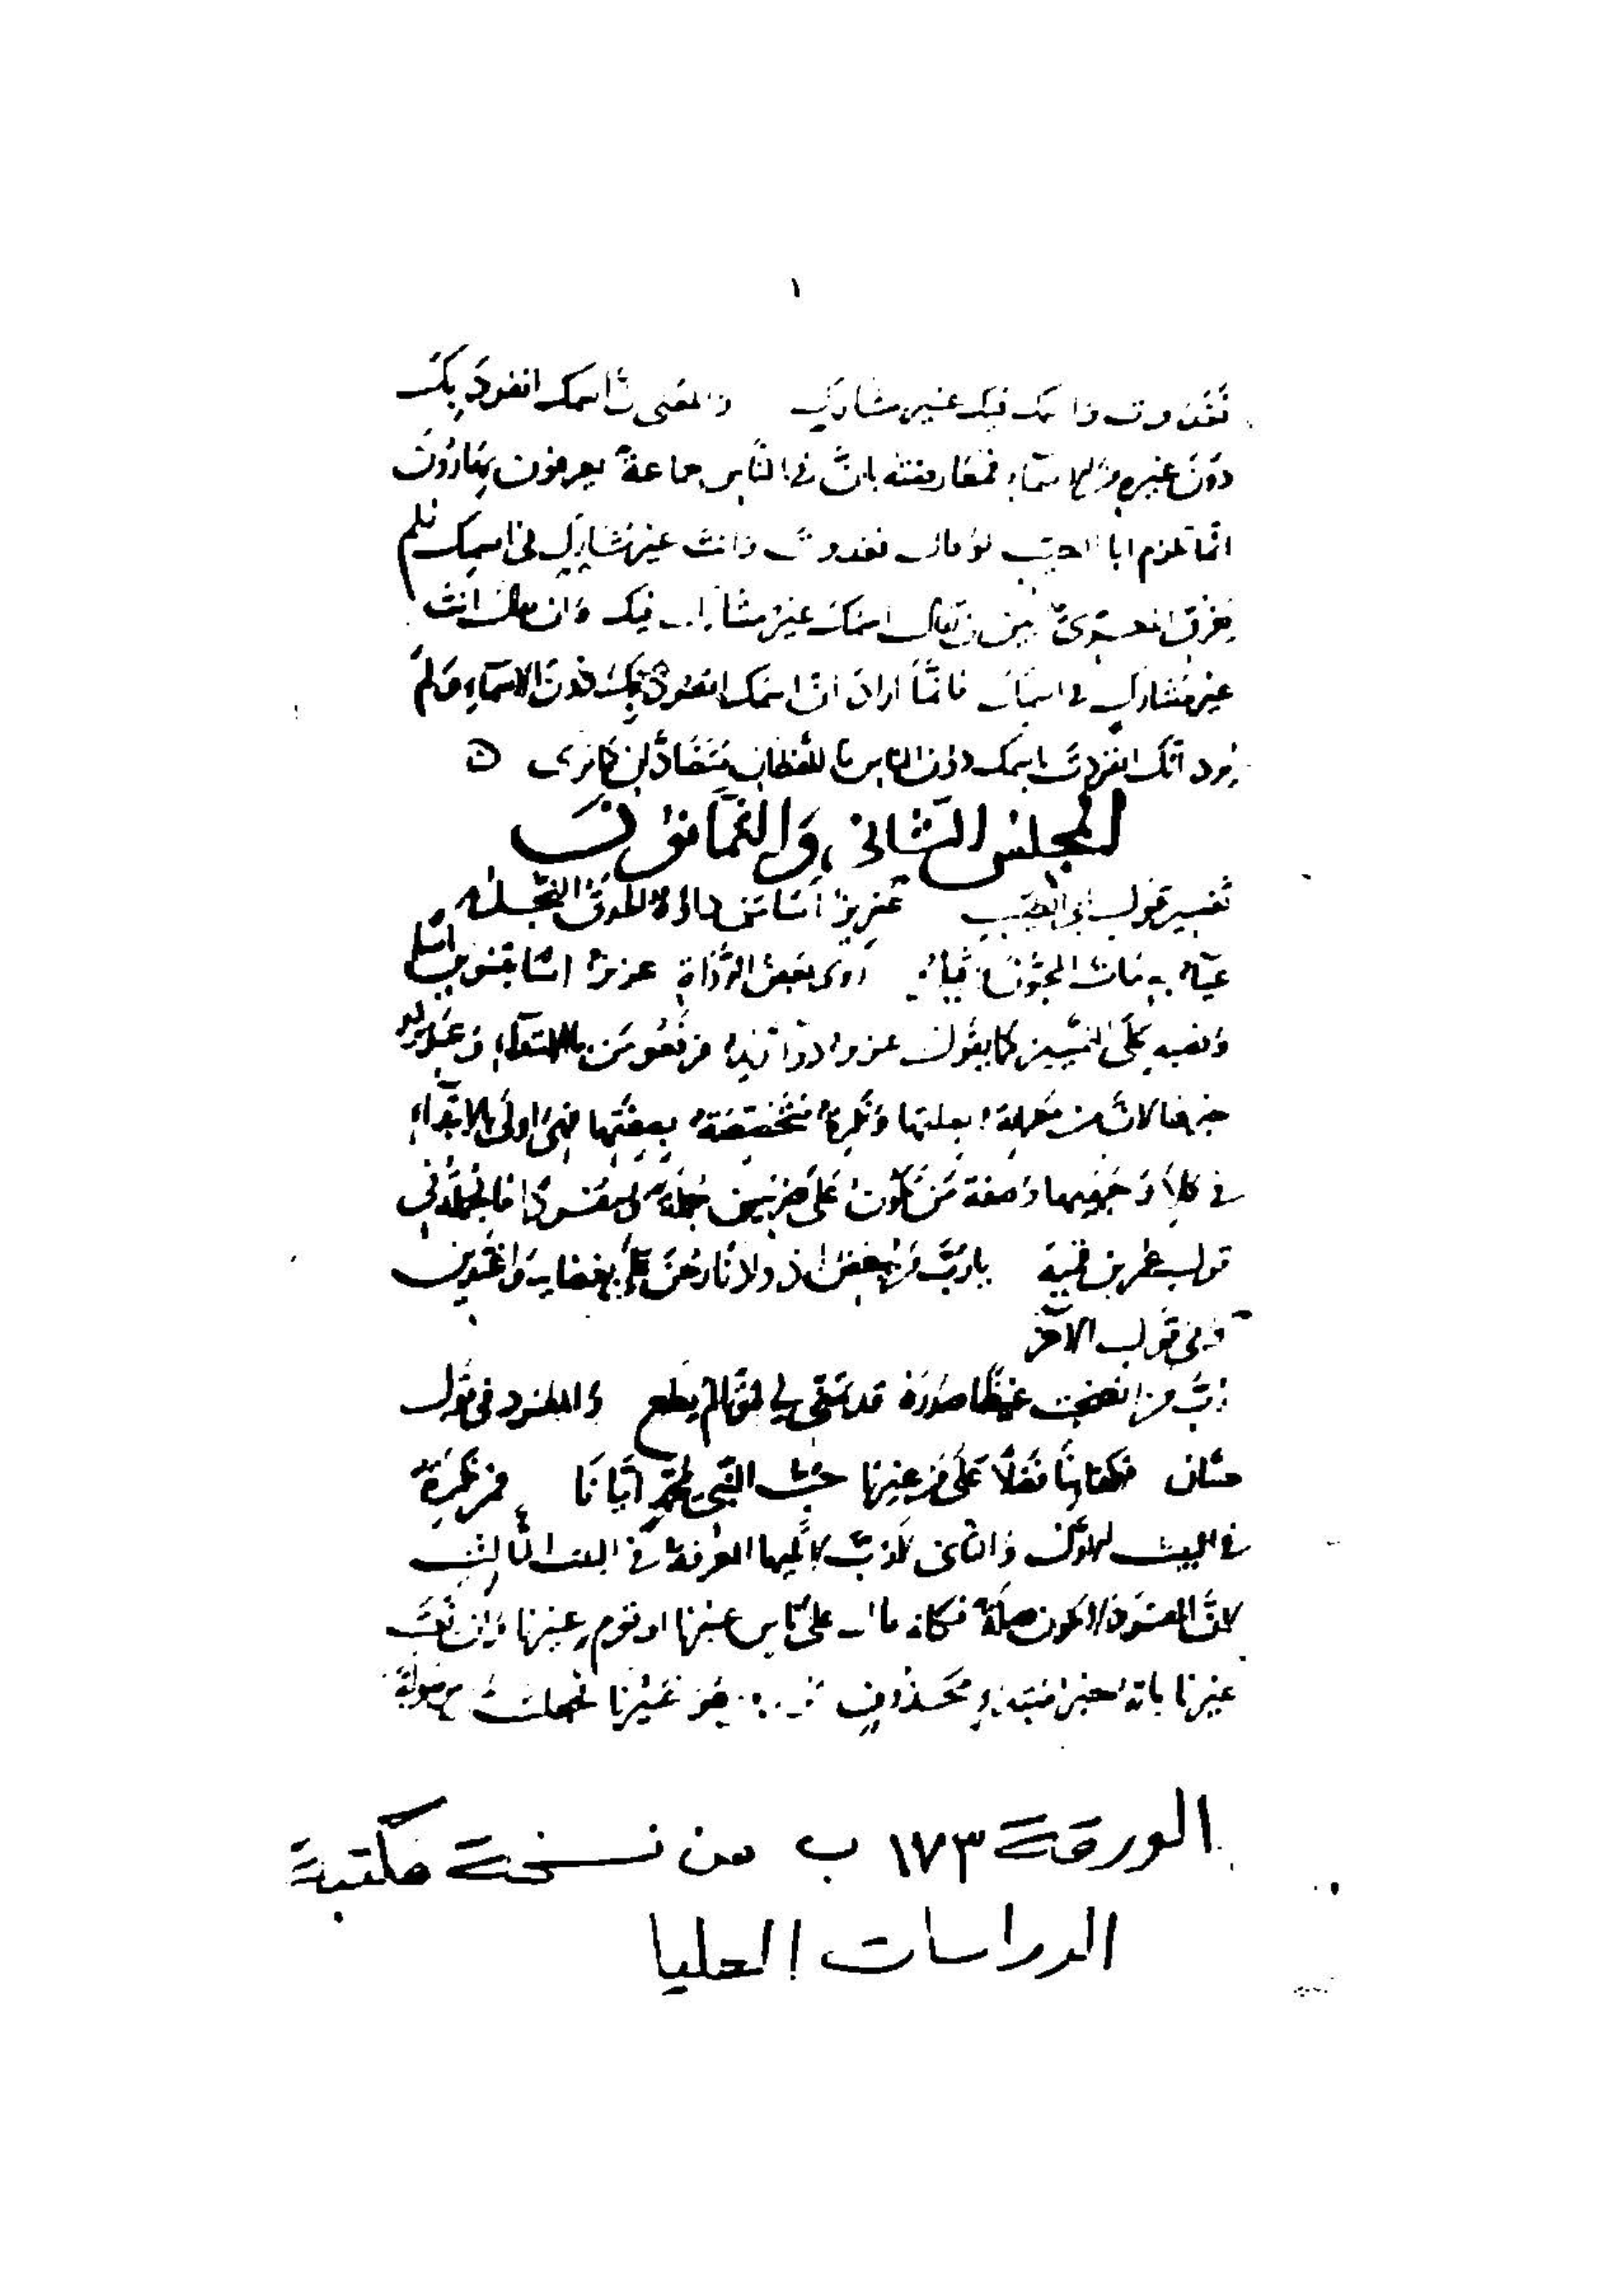 ١
فغدوت واسمك فيك غير مشارك والمعنى أن اسمك انفرد بك
دون غيره من الأسماء فمعارضته بأن في الناس جماعة يعرفون بهارون
انما تلزم ابا الطيب لو قال فغدوت وانت غير مشارك في اسمك فلم
يفرق المعري بين ان يقال اسمك غير مشارك فيك وان يقال انت
غير مشارك في اسمك فانما اراد ان اسمك انفرد بك دون الاسماء ولم
يرد انك انفردت باسمك دون الناس فاللفظان متضادان كما ترى ه
المجلس الثاني والثمانون
تفسير قول ابي الطيب عزيز اسا من داؤه الحدق النجل
عياء به مات المحبون من قبل روى بعض الرواة عزيز اسا بتنوين اسا
ونصبه على التمييز كما يقول عزيز دواء زيد فرفعوا من بالابتداء وعزيز
خبرها لان من معرفة بصلتها ونكرة متخصصة بصفتها فهي اولى بالابتداء
في كلا وجهيها وصفة من تكون على ضربين جملة ومفردا فالجملة في
قول عمرو بن قميئة يا رب من يبغض اذوادنا رحن على بغضائه واغتدين
وفي قول الآخر
رب من انضجت غيظا صدره قد تمنى لي موتا لم يطع والمفرد في قول
حسان فكفى بنا فضلا على من غيرنا حب النبي محمد ايانا فمن نكرة
في البيت الاول والثاني لان رب لا تليها المعرفة وفي البيت الثالث
لان المفرد لا يكون صلة فكأنه قال على ناس غيرنا او قوم غيرنا وان رفعت
غيرنا بانه خبر مبتدإ محذوف من هو غيرنا فجعلت موصولة
الورقة ١٧٣ ب من نسخة مكتبة
الدراسات العليا